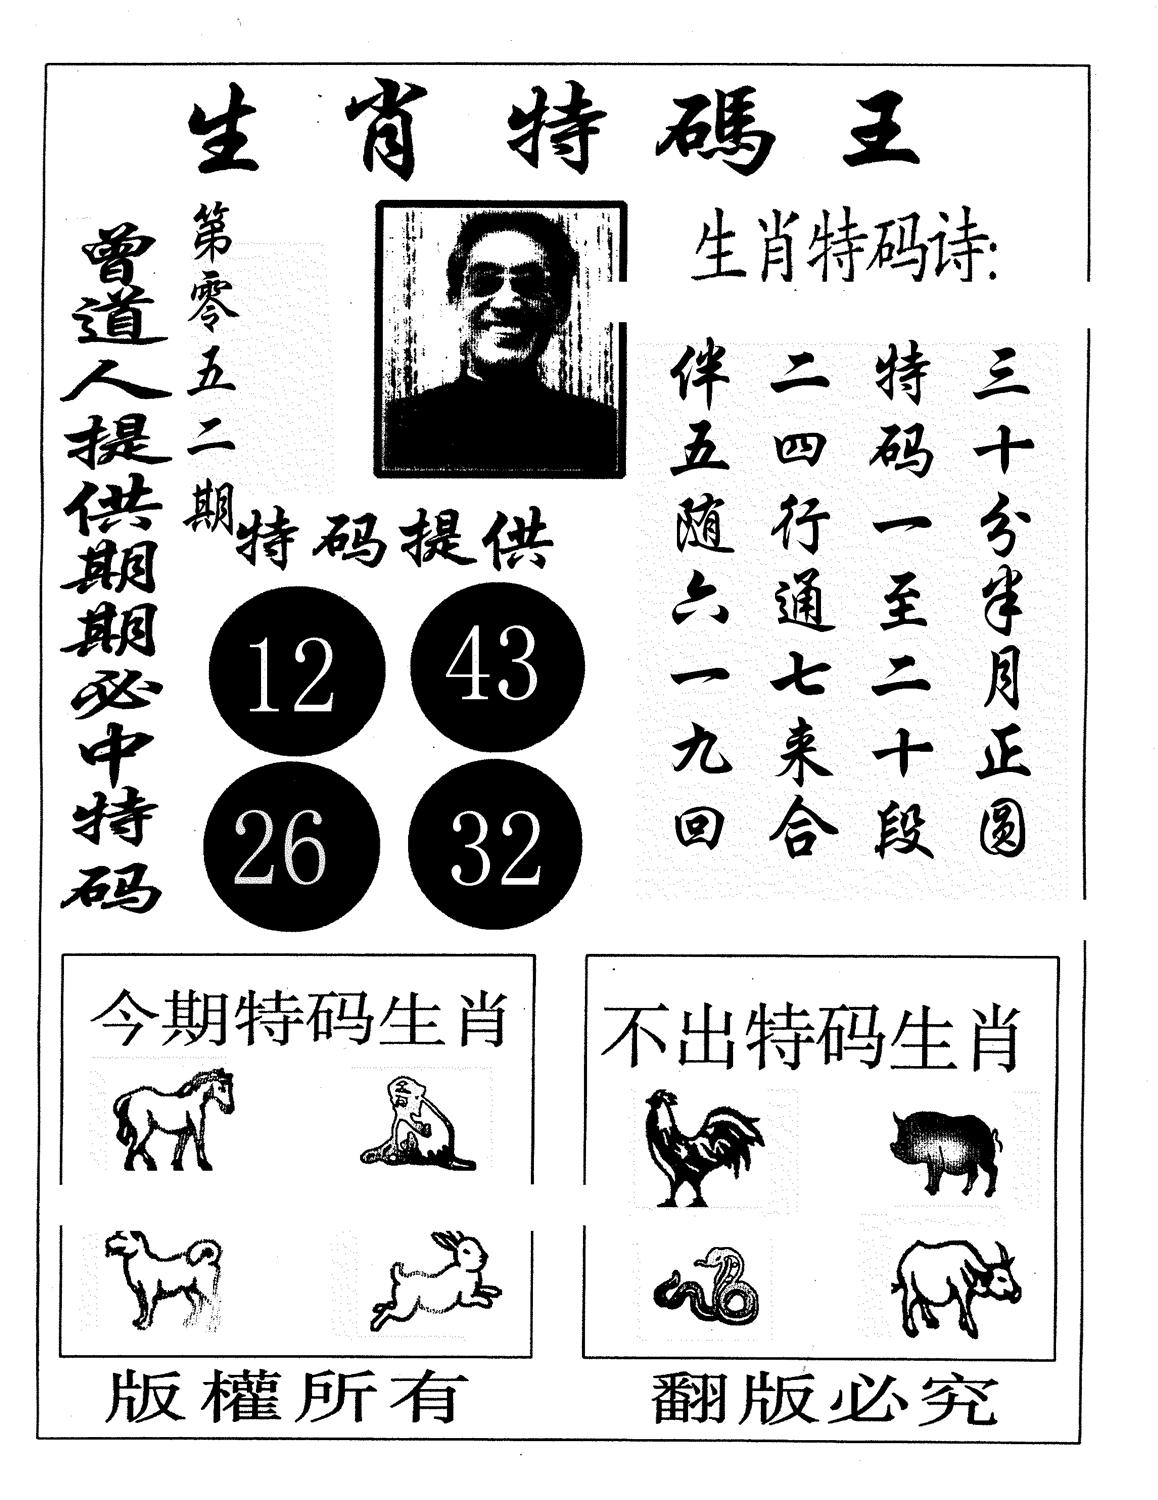 生肖特碼王
曾道人提供期期必中特码
第零五二期
生肖特码诗:
三十分半月正圆
特码一至二十段
二四行通七来合
伴五随六一九回
特码提供
12
43
26
32
今期特码生肖
不出特码生肖
版權所有
翻版必究